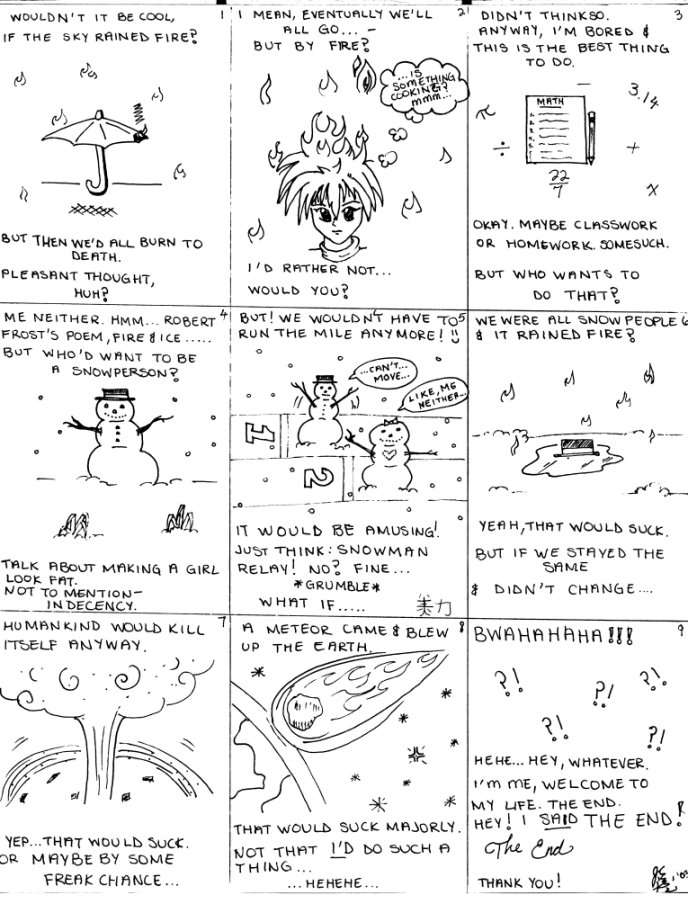 1
WOULDN'T IT BE COOL,
IF THE SKY RAINED FIRE?
BUT THEN WE'D ALL BURN TO
DEATH.
PLEASANT THOUGHT,
HUH?
2
I MEAN, EVENTUALLY WE'LL
ALL GO... -
BUT BY FIRE?
...IS
SOMETHING
COOKING?
MMM...
I'D RATHER NOT...
WOULD YOU?
3
DIDN'T THINK SO.
ANYWAY, I'M BORED &
THIS IS THE BEST THING
TO DO.
π
÷
MATH
1.
2.
3.
4.
5.
−
3.14
+
22/7
x
OKAY. MAYBE CLASSWORK
OR HOMEWORK. SOMESUCH.
BUT WHO WANTS TO
DO THAT?
4
ME NEITHER. HMM... ROBERT
FROST'S POEM, FIRE & ICE.....
BUT WHO'D WANT TO BE
A SNOWPERSON?
TALK ABOUT MAKING A GIRL
LOOK FAT.
NOT TO MENTION-
INDECENCY.
5
BUT! WE WOULDN'T HAVE TO
RUN THE MILE ANYMORE!
...CAN'T
MOVE...
LIKE, ME
NEITHER...
1
2
IT WOULD BE AMUSING!
JUST THINK: SNOWMAN
RELAY! NO? FINE...
*GRUMBLE*
WHAT IF.....
美力
6
WE WERE ALL SNOW PEOPLE
& IT RAINED FIRE?
YEAH, THAT WOULD SUCK.
BUT IF WE STAYED THE
SAME
& DIDN'T CHANGE....
7
HUMANKIND WOULD KILL
ITSELF ANYWAY.
YEP...THAT WOULD SUCK.
OR MAYBE BY SOME
FREAK CHANCE...
8
A METEOR CAME & BLEW
UP THE EARTH.
THAT WOULD SUCK MAJORLY.
NOT THAT I'D DO SUCH A
THING...
...HEHEHE...
9
BWAHAHAHA!!!
?!
?!
?!
?!
?!
HEHE... HEY, WHATEVER.
I'M ME, WELCOME TO
MY LIFE. THE END.
HEY! I SAID THE END!
The End
THANK YOU!